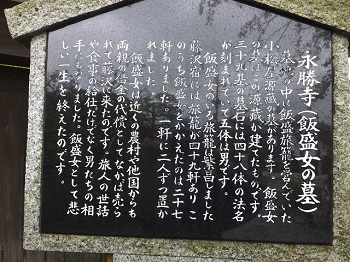 永勝寺(飯盛女の墓)
墓地の中に飯盛旅籠を営んでいた
小松屋源蔵の墓があります。飯盛女
の墓はこの源蔵が建てたものです。
三十九基の墓石には四十八体の法名
が刻まれていて五体は男子です。
飯盛女のいる旅籠は繁昌しました
藤沢宿には旅籠が四十九軒ありこ
のうち飯盛女をかかえたのは二十七
軒ありました。一軒に二人ずつ置か
れました。
飯盛女は近くの農村や他国からも
両親の借金の代償として、なかば売ら
れて藤沢に来たのです。旅人の世話
や食事の給仕だけでなく男たちの相
手にもなりました。飯盛女として悲
しい一生を終えたのです。